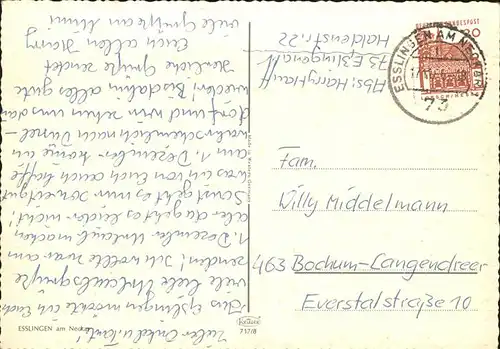 Lieber Onkel u. Tante!
Aus Eßlingen möchte ich Euch
viele liebe Urlaubsgrüße
senden! Ich wollte zwar am
1. Dezember Urlaub machen
aber da geht es leider nicht!
Sonst geht es mir soweit gut
was ich von Euch auch hoffe
am 1. Dezember komme ich
wahrscheinlich nach Düssel-
dorf und wir sehen uns dann
wieder! Bis dahin alles gute
Herzliche Grüße sendet
Euch allen Harry
viele Grüße an
Abs: Harry Hauff
73 Eßlingen a/N
Haldenstr. 22
DEUTSCHE BUNDESPOST
20
ESSLINGEN AM NECKAR
73
Fam.
Willy Middelmann
463 Bochum-Langendreer
Everstalstraße 10
ESSLINGEN am Neckar
717/8